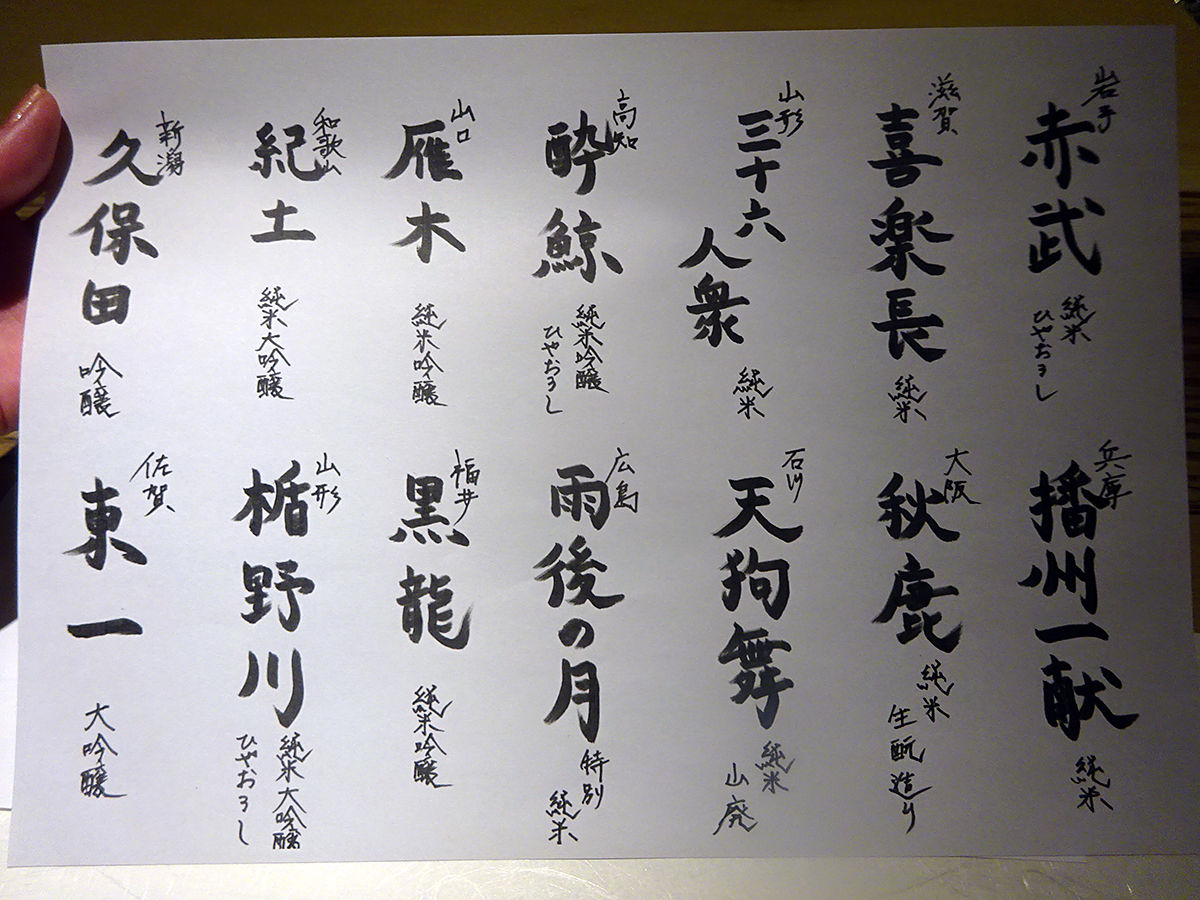 岩手
赤武
純米
ひやおろし
滋賀
喜楽長
純米
山形
三十六
人衆
純米
高知
酔鯨
純米吟醸
ひやおろし
山口
雁木
純米吟醸
和歌山
紀土
純米大吟醸
新潟
久保田
吟醸
兵庫
播州一献
純米
大阪
秋鹿
純米
生酛造り
石川
天狗舞
純米
山廃
広島
雨後の月
特別
純米
福井
黒龍
純米吟醸
山形
楯野川
純米大吟醸
ひやおろし
佐賀
東一
大吟醸